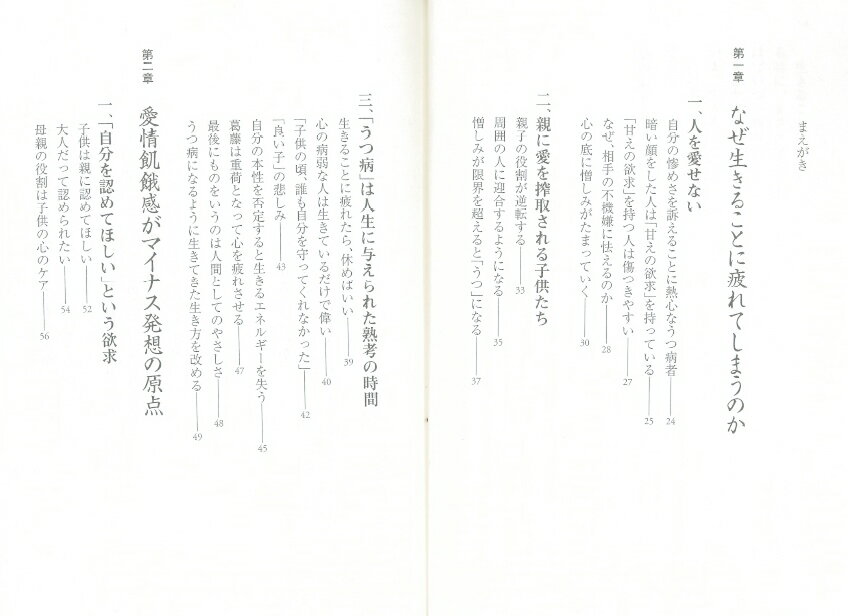 まえがき
第一章 なぜ生きることに疲れてしまうのか
一、人を愛せない
自分の惨めさを訴えることに熱心なうつ病者——24
暗い顔をした人は「甘えの欲求」を持っている——25
「甘えの欲求」を持つ人は傷つきやすい——27
なぜ、相手の不機嫌に怯えるのか——28
心の底に憎しみがたまっていく——30
二、親に愛を搾取される子供たち
親子の役割が逆転する——33
周囲の人に迎合するようになる——35
憎しみが限界を超えると「うつ」になる——37
三、「うつ病」は人生に与えられた熟考の時間
生きることに疲れたら、休めばいい——39
心の病弱な人は生きているだけで偉い——40
「子供の頃、誰も自分を守ってくれなかった」——42
「良い子」の悲しみ——43
自分の本性を否定すると生きるエネルギーを失う——45
葛藤は重荷となって心を疲れさせる——47
最後にものをいうのは人間としてのやさしさ——48
うつ病になるように生きてきた生き方を改める——49
第二章 愛情飢餓感がマイナス発想の原点
一、「自分を認めてほしい」という欲求
子供は親に認めてほしい——52
大人だって認められたい——54
母親の役割は子供の心のケア——56